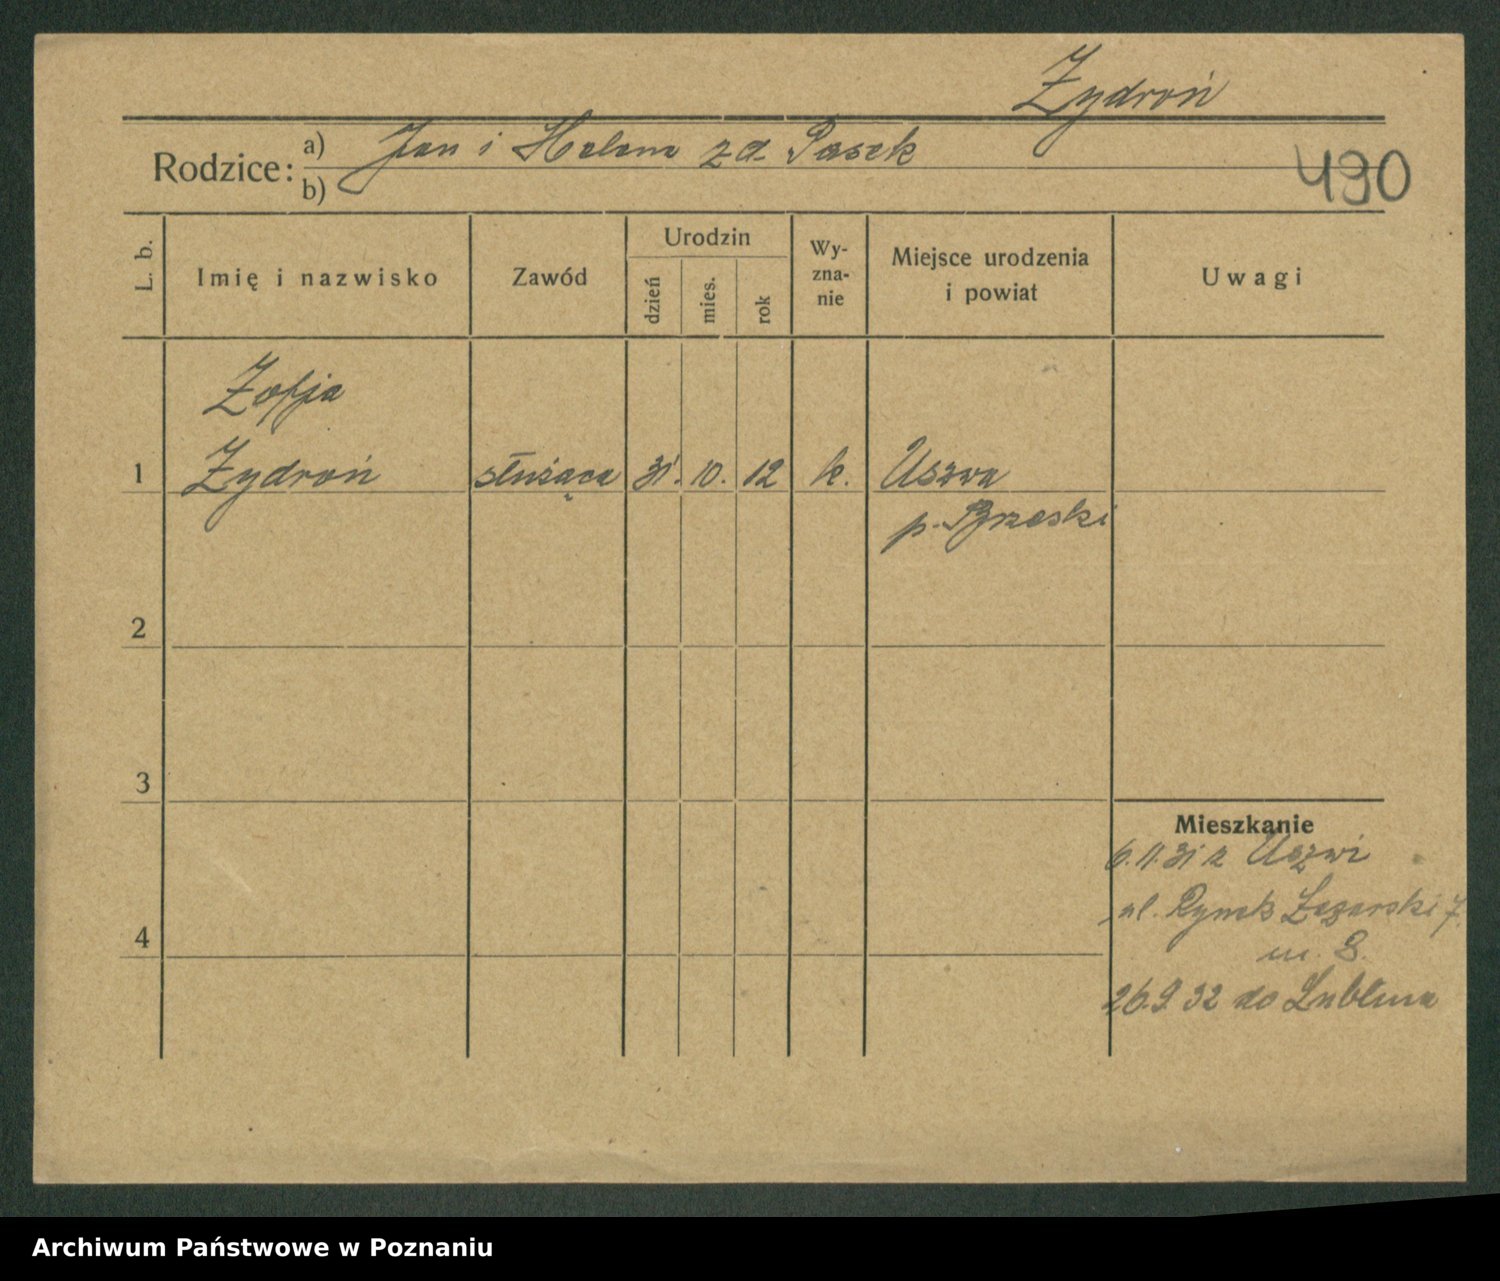 Żydroń
Rodzice: a) Jan i Helena zd. Pasek
b)
490
L. b.
Imię i nazwisko
Zawód
Urodzin
dzień
mies.
rok
Wy-
zna-
nie
Miejsce urodzenia
i powiat
Uwagi
Zofja
1 Żydroń służąca 31. 10. 12 k. Uszwa
p. Brzeski
2
3
Mieszkanie
6.11.31 z Uszwi
ul. Rynek Łazarski 7.
m. 8.
4
26.9 32 do Lublina
Archiwum Państwowe w Poznaniu